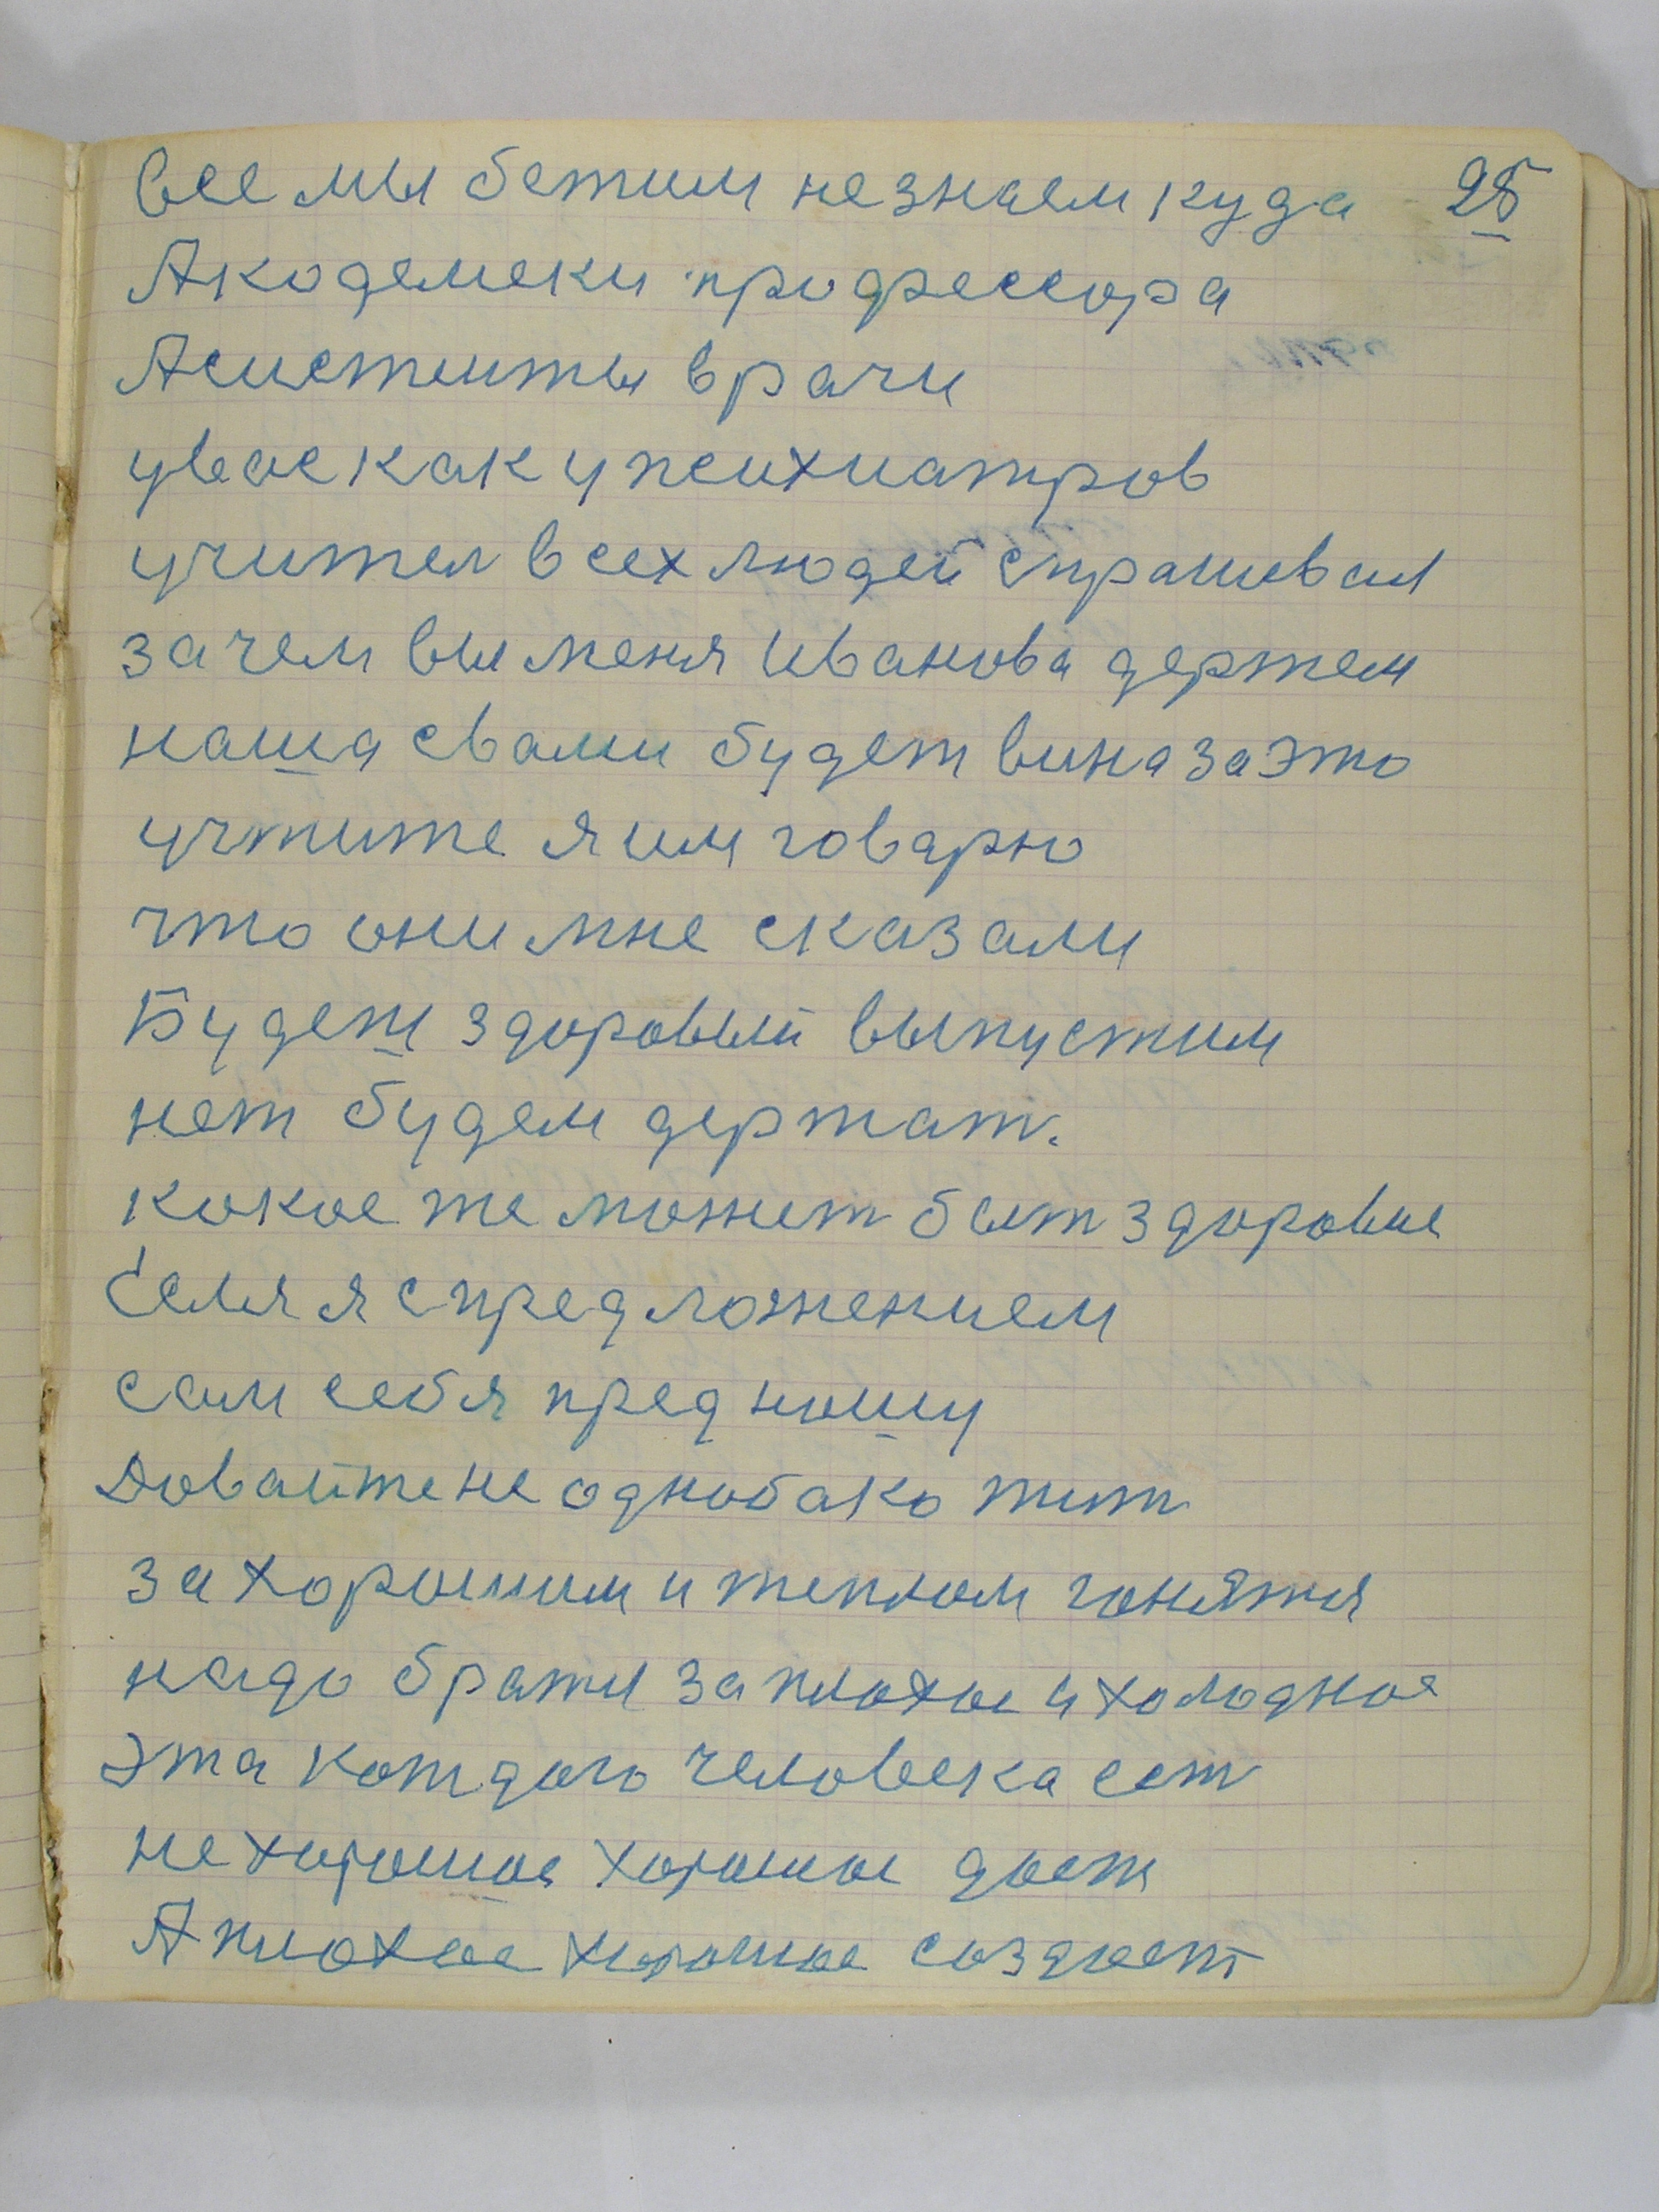 Все мы бежим незнаем куда 25
Акодемеки профессора
Асистенты врачи
увас как у психиатров
учител всех людей спрашевал
зачем вы меня Иванова держем
наша свами будет вина за это
учтите я им говарю
что они мне сказали
Будеш здоровый выпустим
нет будем держат.
кокое же может быт здоровие
Если я спредложением
сам себя предношу
Довайте не однобако жит
за хорошим и теплом гонятся
надо браты за плохое и холодное
эта кождого человека ест
не хорошое хорошое дает
А плохое хорошое создает